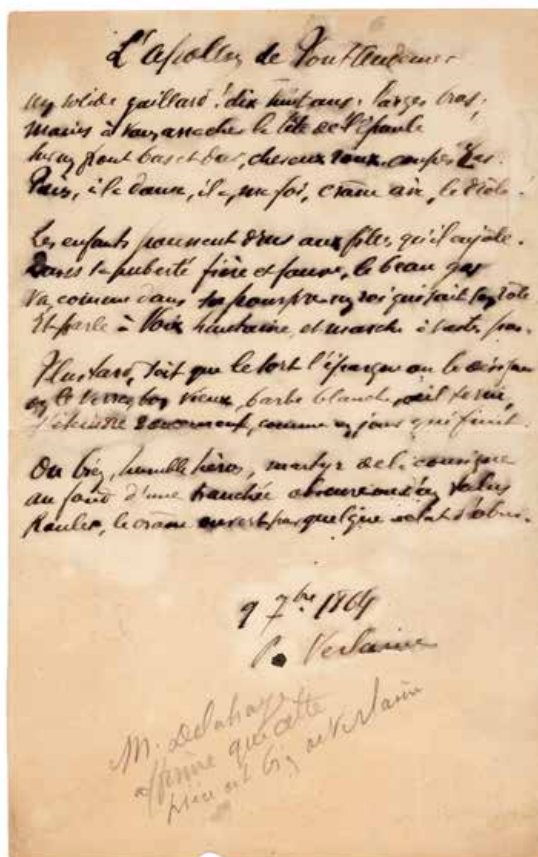 L'Apollon de Pont-Audemer
un solide gaillard ! dix huit ans : larges bras ;
mains à vous arracher la tête de l'épaule
sous un front bas et dur, cheveux roux, coupés ras.
Puis, à la danse, il a, ma foi, crâne air, le drôle !
Les enfants poussent drus aux filles qu'il enjôle.
Dans sa puberté fière et fauve, le beau gas
Va, comme dans sa pourpre un roi qui sait son rôle
Et parle à voix hautaine, et marche à vastes pas.
Plus tard, soit que le sort l'épargne ou le désigne
on le verra, bon vieux, barbe blanche, œil terni,
s'éteindre doucement, comme un jour qui finit.
Ou bien, humble héros, martyr de la consigne
au fond d'une tranchée obscure ou d'un talus
Rouler, le crâne ouvert par quelque éclat d'obus.
9 7bre 1864
P. Verlaine
M. Delahaye
affirme que cette
pièce est bien de Verlaine